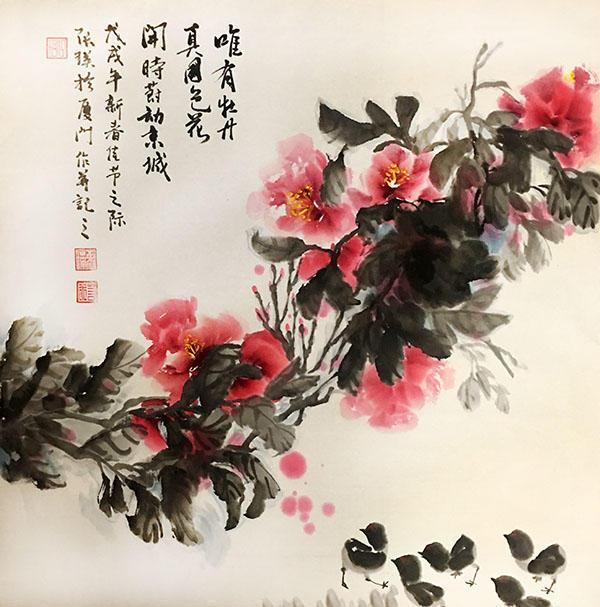 唯有牡丹
真国色花
開時節动京城
戊戌年新春佳节之际
张於厦门作并記之